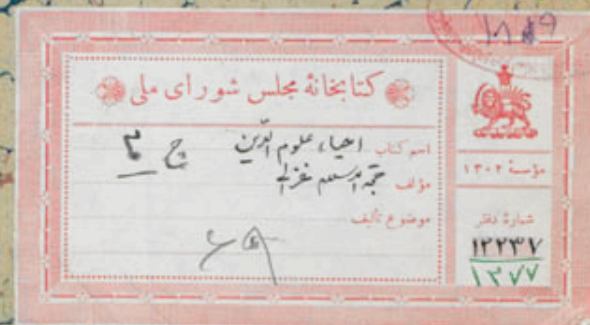 ۱۸۴۹
کتابخانهٔ مجلس شورای ملی
اسم کتاب احیاء علوم الدّین ج ۳
مؤلف حجة الاسلام غزالی
موضوع تألیف
مؤسسهٔ ۱۳۰۲
شمارهٔ دفتر
۱۲۲۳۷
۱۳۷۷